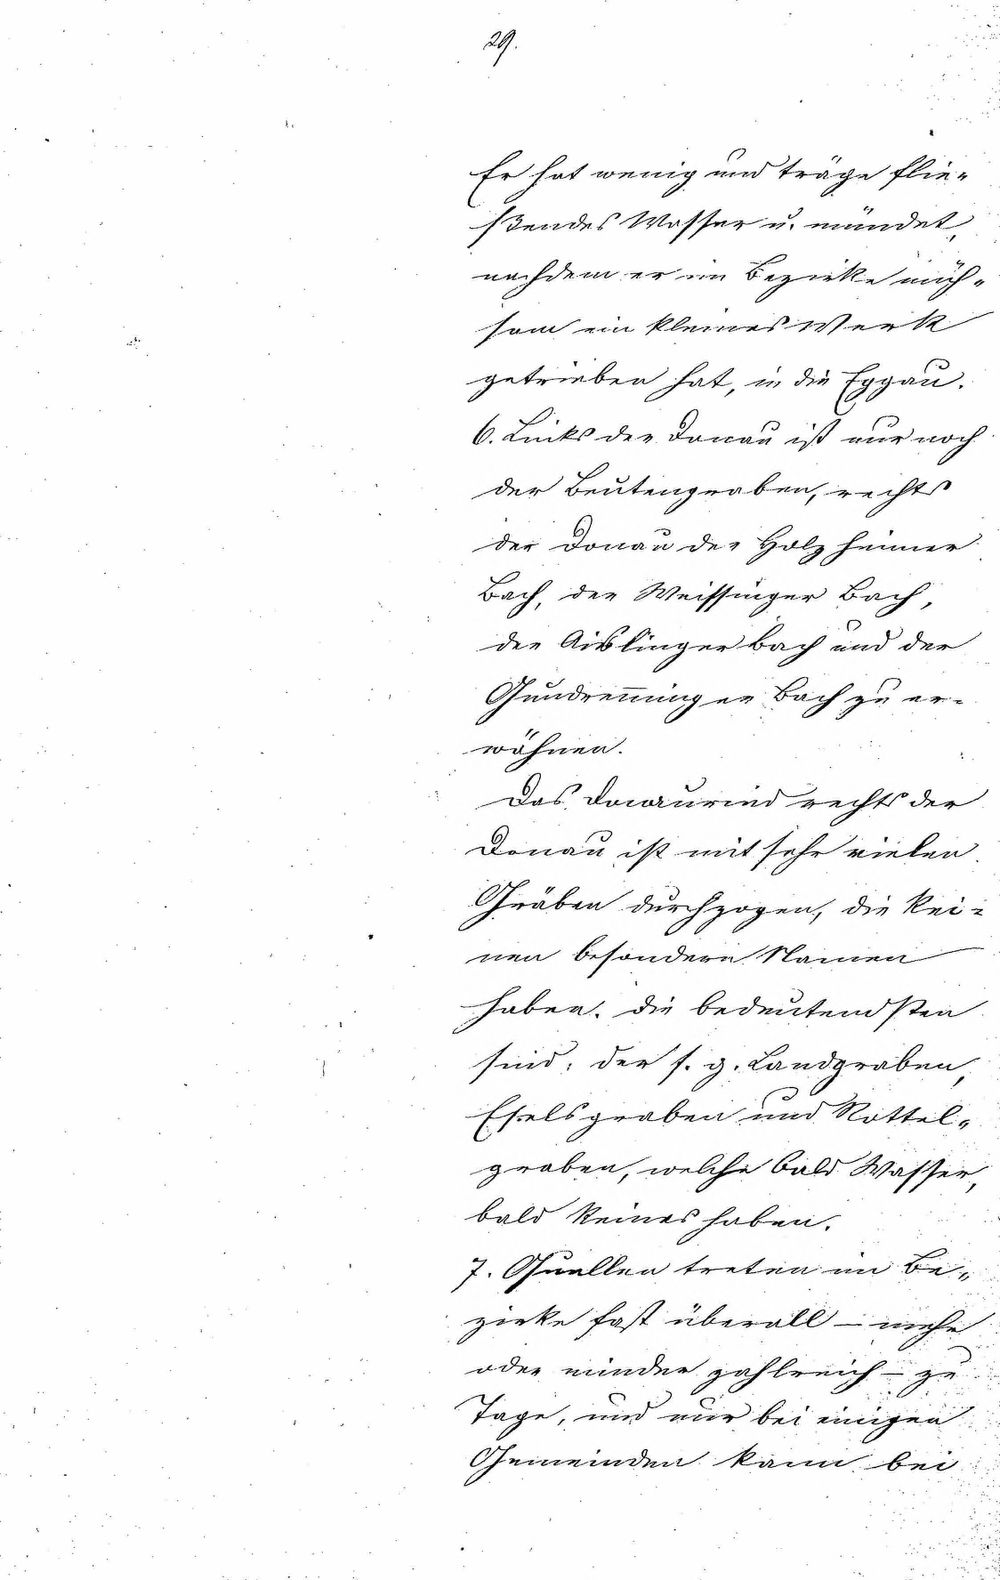 29.
Er hat wenig und träge flie-
ßendes Wasser u. mündet,
nachdem er im Bezirke müh-
sam ein kleines Werk
getrieben hat, in die Eggau.
6. Links der Donau ist nur noch
der Beutengraben, rechts
der Donau der Holzheimer
Bach, der Weissinger Bach,
der Aislinger Bach und der
Gundremminger Bach zu er-
wähnen.
Das Donauried rechts der
Donau ist mit sehr vielen
Gräben durchzogen, die kei-
nen besondern Namen
haben. die bedeutendsten
sind: der s. g. Landgraben,
Eselsgraben und Rottel-
graben, welche bald Wasser,
bald keines haben.
7. Quellen treten im Be-
zirke fast überall – mehr
oder minder zahlreich – zu
Tage, und nur bei einigen
Gemeinden kann bei